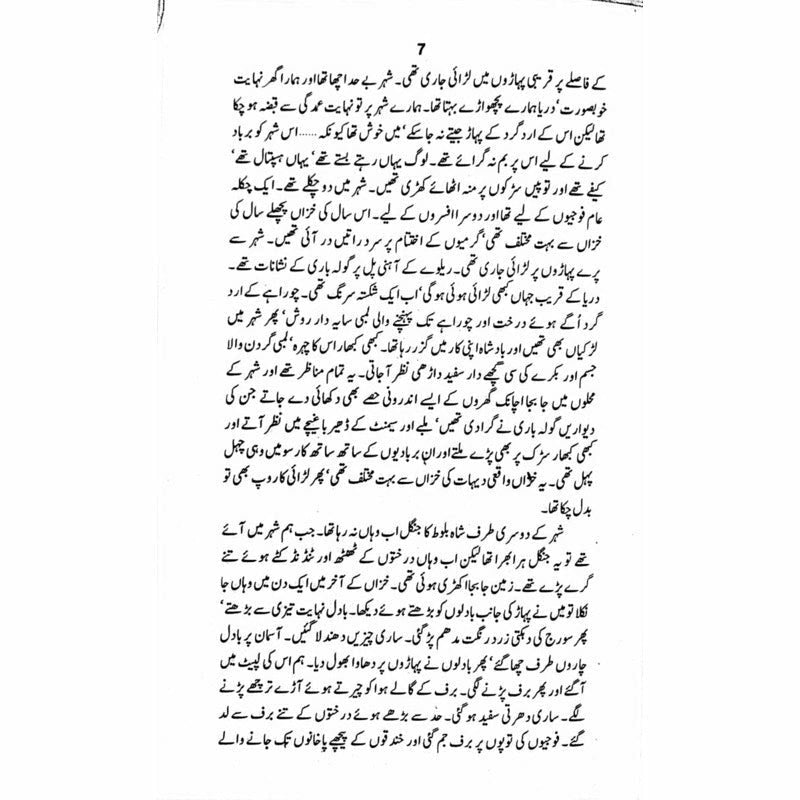 7
کے فاصلے پر قریبی پہاڑوں میں لڑائی جاری تھی۔ شہر بے حد اچھا تھا اور ہمارا گھر نہایت
خوبصورت‘ دریا ہمارے پچھواڑے بہتا تھا۔ ہمارے شہر پر تو نہایت عمدگی سے قبضہ ہو چکا
تھا لیکن اس کے ارد گرد کے پہاڑ جیتے نہ جا سکے‘ میں خوش تھا کیونکہ ...... اس شہر کو برباد
کرنے کے لیے اس پر بم نہ گرائے تھے۔ لوگ یہاں رہتے بستے تھے‘ یہاں ہسپتال تھے‘
کیفے تھے اور توپیں سڑکوں پر منہ اٹھائے کھڑی تھیں۔ شہر میں دو چکلے تھے۔ ایک چکلہ
عام فوجیوں کے لیے تھا اور دوسرا افسروں کے لیے۔ اس سال کی خزاں پچھلے سال کی
خزاں سے بہت مختلف تھی‘ گرمیوں کے اختتام پر سرد راتیں در آئی تھیں۔ شہر سے
پرے پہاڑوں پر لڑائی جاری تھی۔ ریلوے کے آہنی پل پر گولہ باری کے نشانات تھے۔
دریا کے قریب جہاں کبھی لڑائی ہوئی ہوگی‘ اب ایک شکستہ سرنگ تھی۔ چوراہے کے ارد
گرد اُگے ہوئے درخت اور چوراہے تک پہنچنے والی لمبی سایہ دار روش‘ پھر شہر میں
لڑکیاں بھی تھیں اور بادشاہ اپنی کار میں گزر رہا تھا۔ کبھی کبھار اس کا چہرہ‘ لمبی گردن والا
جسم اور بکرے کی سی گچھے دار سفید داڑھی نظر آ جاتی۔ یہ تمام مناظر تھے اور شہر کے
محلوں میں جا بجا اچانک گھروں کے ایسے اندرونی حصے بھی دکھائی دے جاتے جن کی
دیواریں گولہ باری نے گرا دی تھیں‘ ملبے اور سیمنٹ کے ڈھیر باغیچے میں نظر آتے اور
کبھی کبھار سڑک پر بھی پڑے ملتے اور ان بربادیوں کے ساتھ ساتھ کارسو میں وہی چہل
پہل تھی۔ یہ خزاں واقعی دیہات کی خزاں سے بہت مختلف تھی‘ پھر لڑائی کا روپ بھی تو
بدل چکا تھا۔
شہر کے دوسری طرف شاہ بلوط کا جنگل اب وہاں نہ رہا تھا۔ جب ہم شہر میں آئے
تھے تو یہ جنگل ہرا بھرا تھا لیکن اب وہاں درختوں کے ٹھنٹھ اور ٹنڈ منڈ کٹے ہوئے تنے
گرے پڑے تھے۔ زمین جا بجا اکھڑی ہوئی تھی۔ خزاں کے آخر میں ایک دن میں وہاں جا
نکلا تو میں نے پہاڑ کی جانب بادلوں کو بڑھتے ہوئے دیکھا۔ بادل نہایت تیزی سے بڑھتے‘
پھر سورج کی دہکتی زرد رنگت مدھم پڑ گئی۔ ساری چیزیں دھندلا گئیں۔ آسمان پر بادل
چاروں طرف چھا گئے‘ پھر بادلوں نے پہاڑوں پر دھاوا بھول دیا۔ ہم اس کی لپیٹ میں
آ گئے اور پھر برف پڑنے لگی۔ برف کے گالے ہوا کو چیرتے ہوئے آڑے ترچھے پڑنے
لگے۔ ساری دھرتی سفید ہو گئی۔ حد سے بڑھے ہوئے درختوں کے تنے برف سے لد
گئے۔ فوجیوں کی توپوں پر برف جم گئی اور خندقوں کے پیچھے پاخانوں تک جانے والے